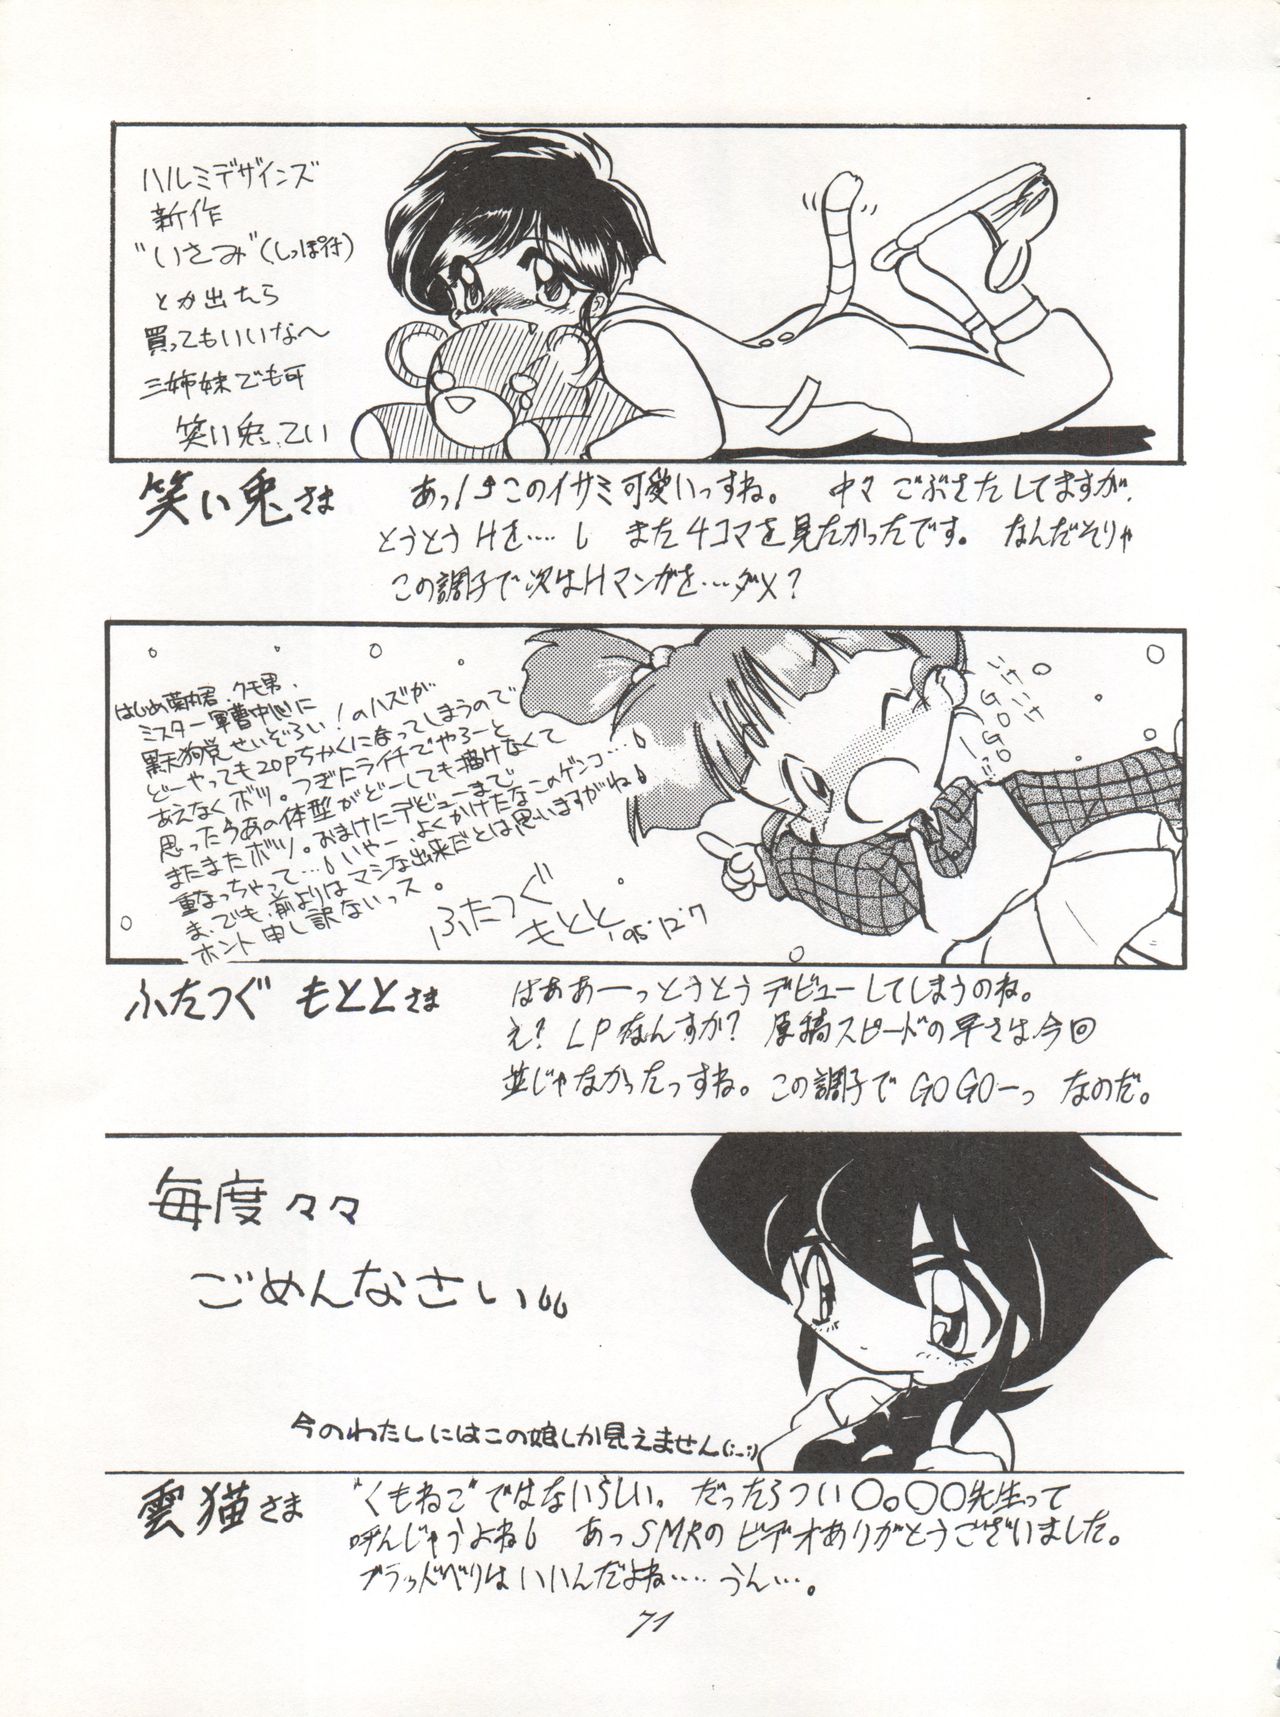 ハルミデザインズ
新作
"いさみ"(しっぽ付)
とか出たら
買ってもいいな〜
三姉妹でも可
笑い兎
笑い兎さま
このイサミ可愛いっすね。 中々ごぶさたしてますが、
とうとうHを‥‥ し また4コマを見たかったです。 なんだそりゃ
この調子で次はHマンガを‥‥ダメ?
こけこけ
GOGO
ーっ!!
はじめ
クモ男、
ミスター軍曹中心に
黒天狗党せいぞろい!のハズが
どーやっても20Pちかくになってしまうので
あえなくボツ。つぎにライチでやろーと
思ったらあの体型がどーしても描けなくて
またまたボツ。おまけにデビューまで
重なっちゃって…いやーよくかけたなこのゲンコ…
ま、でも、前よりはマシな出来だとは思いますがね
ホント申し訳ないっス。
ふたつぐ
もとと
'95・12・7
ふたつぐ もととさま
ばああーっとうとうデビューしてしまうのね。
え? LPなんすか? 原稿スピードの早さは今回
並じゃなかったっすね。この調子でGOGOーっ なのだ。
毎度々々
ごめんなさい
今のわたしにはこの娘しか見えません(;_;)
雲猫さま
"くもねこ"ではないらしい。だったらつい〇。〇〇先生って
呼んじゃうよね あっSMRのビデオありがとうございました。
ブラッドベリはいいんだよね‥‥うん‥‥。
71